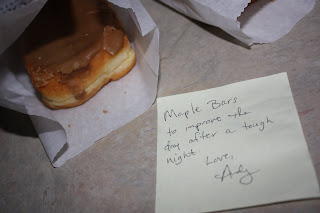 Maple Bars
to improve the
day after a tough
night.
Love,
Andy